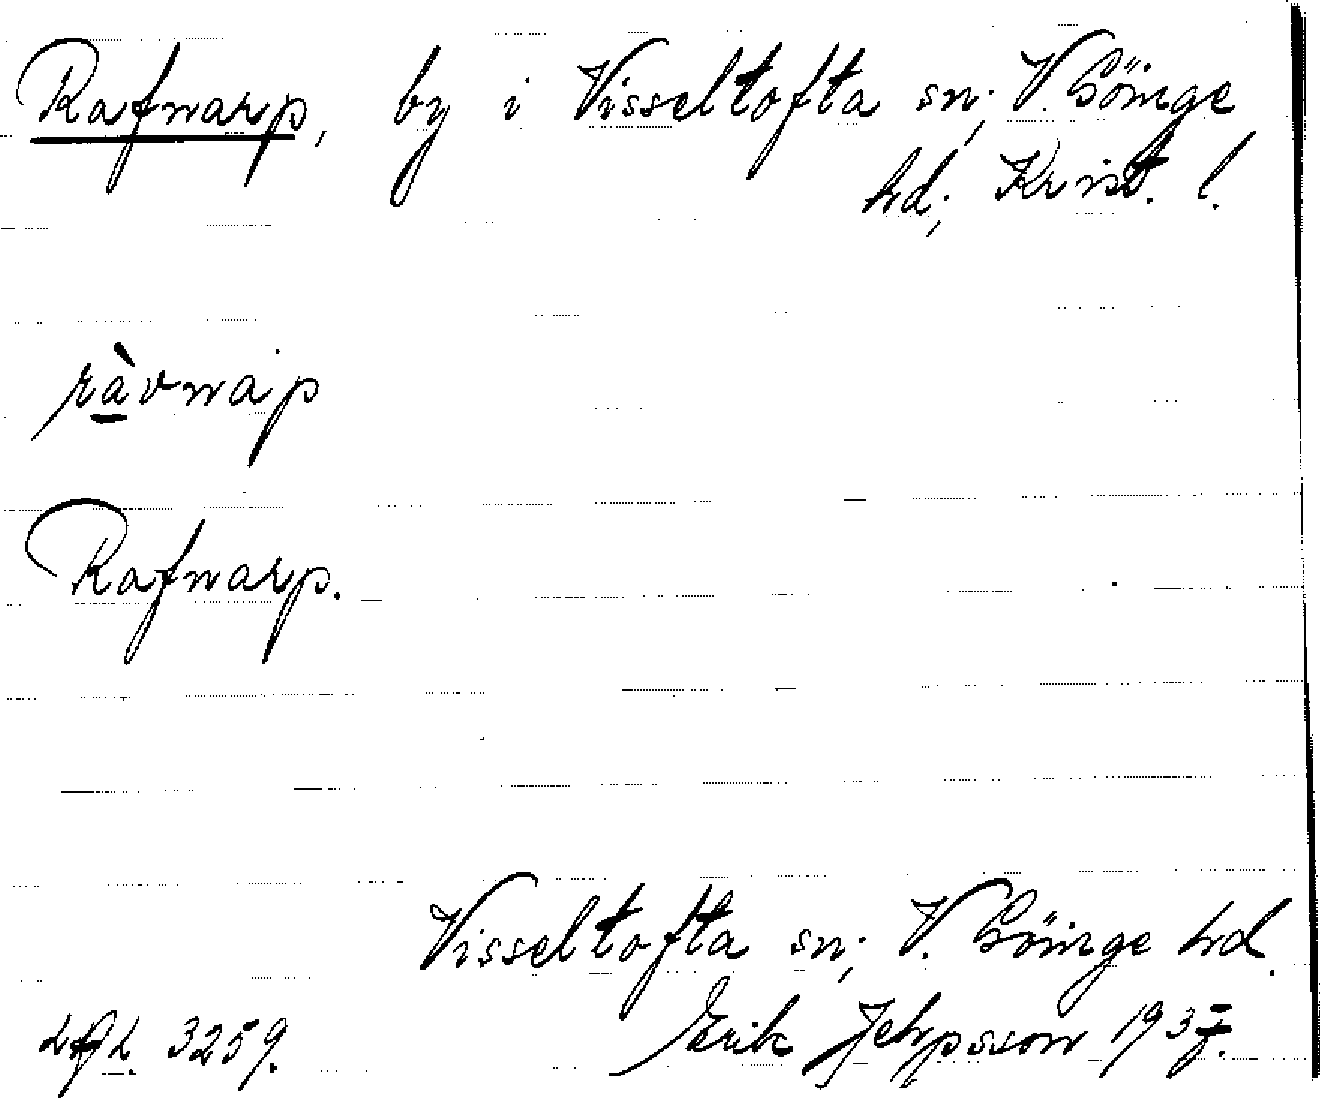 Rafnarp, by i Visseltofta sn; V. Göinge
hd; Krist. l.
ràvnap
Rafnarp.
Visseltofta sn; V. Göinge hd.
3259. Erik Jeppsson 1937.